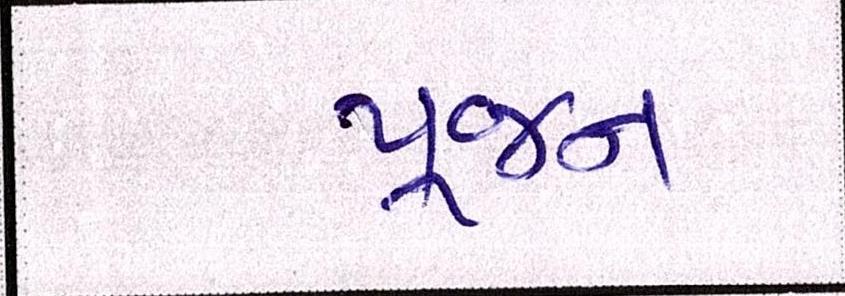 પૂજન